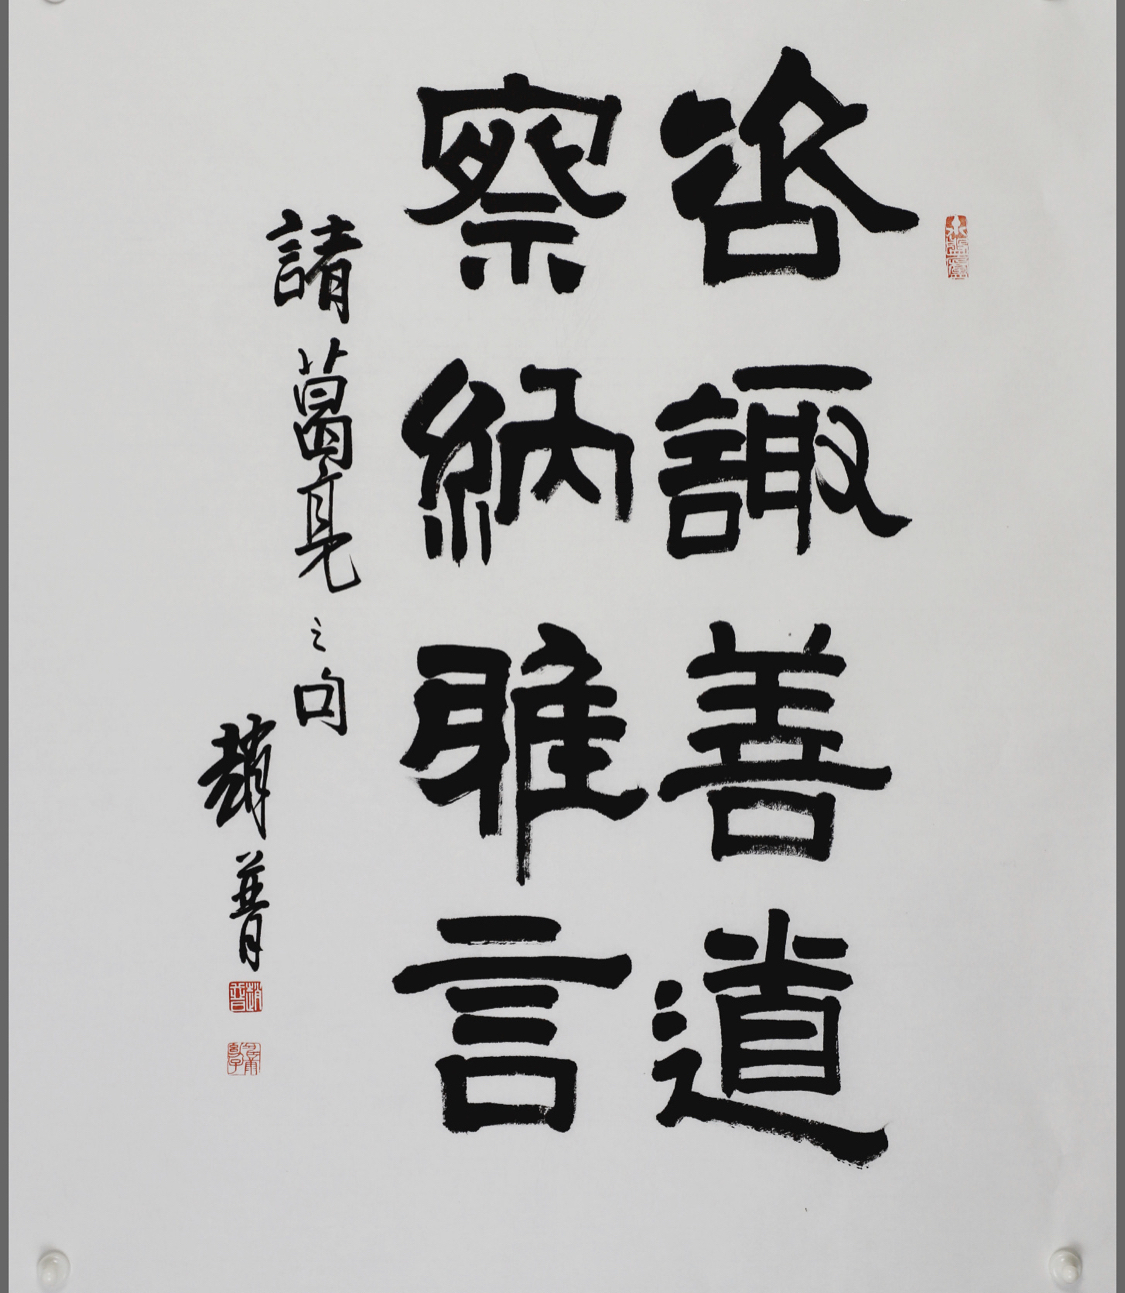 咨諏善道
察納雅言
諸葛亮之句
趙普
趙普